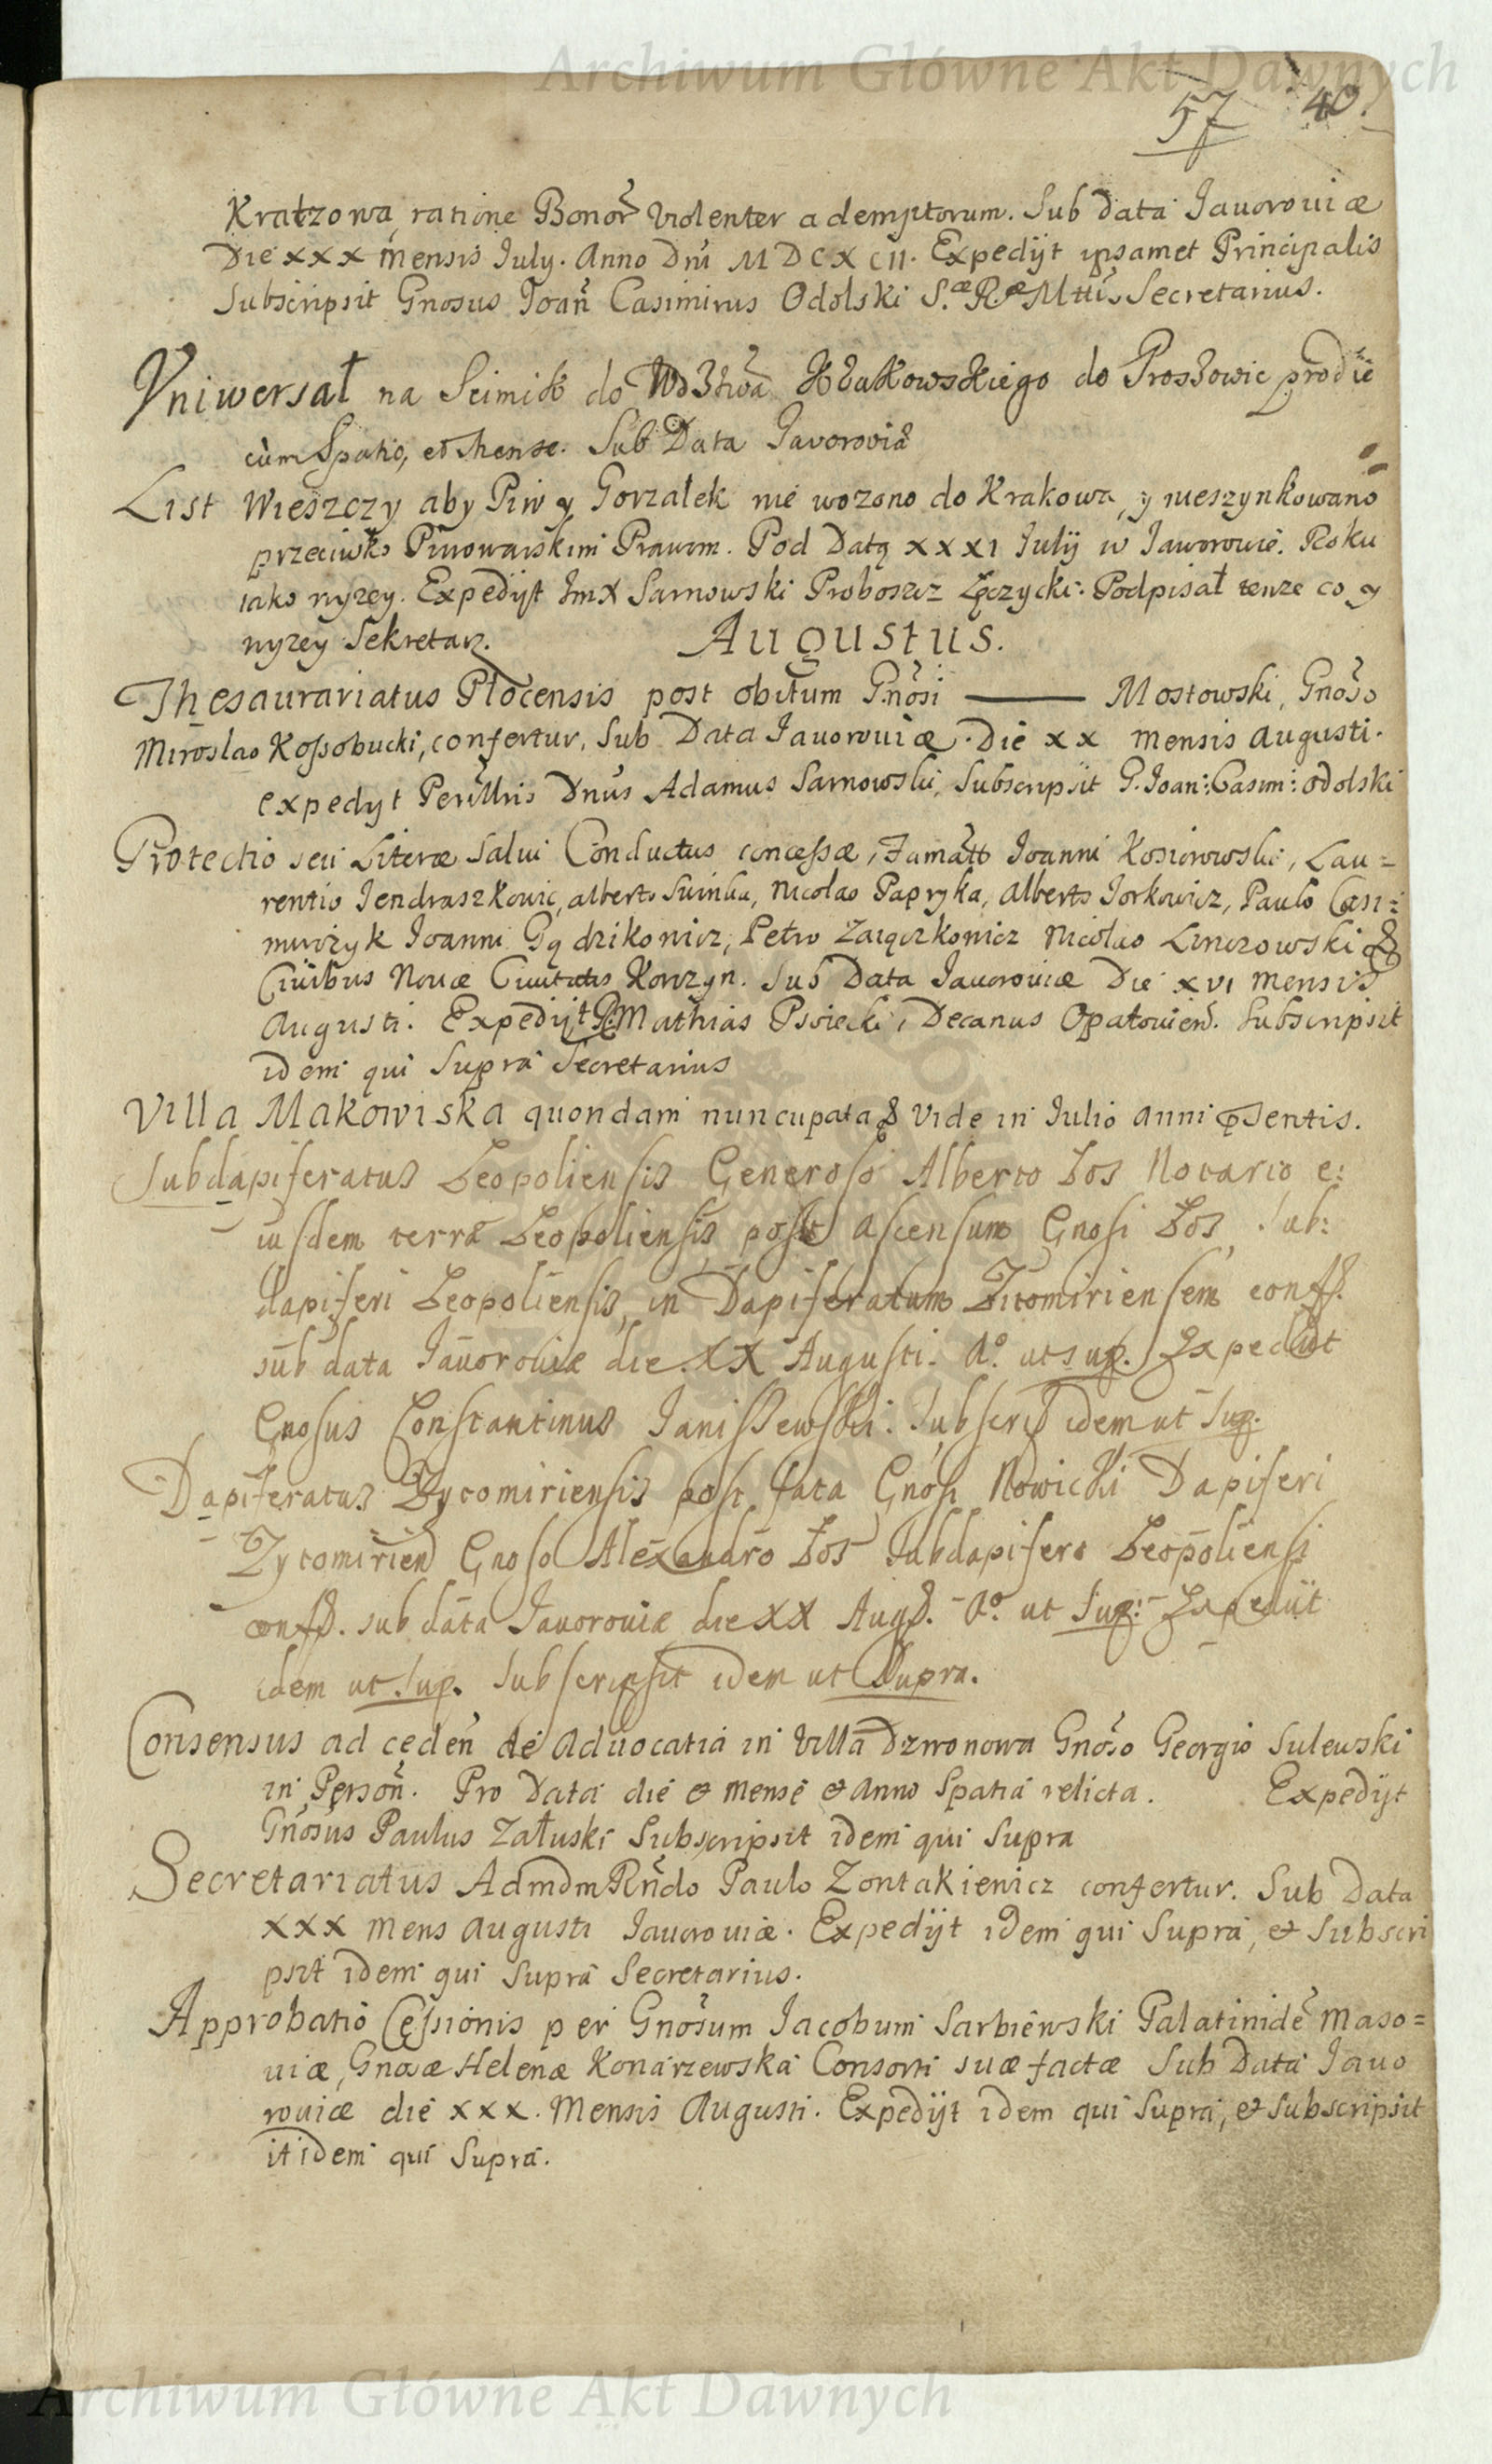 Archiwum Główne Akt Dawnych
57 40.
Kratzowa, ratione Bonor Violenter ademptorum. Sub Data Javoroviæ
Die xxx mensis July. Anno Dni MDCXCII. Expedijt ipsamet Principalis
Subscripsit Gnosus Joan Casimirus Odolski S.æ R.æ Mttis Secretarius.
Vniwersał na Seimik do Wdztwa Krakowskiego do Proszowic pro die
cum Spatio, et Mense. Sub Data Javorovia
List Wieszczy aby Piw y Gorzałek nie wozono do Krakowa, y nieszynkowano
przeciwko Piwowarskim Prawom. Pod Datą xxxi Julij w Jaworowie. Roku
iako wyzey. Expedijt JmX Sarnowski Proboszcz Łęczycki. Podpisał tenze co y
wyzey Sekretarz. Augustus.
Thesaurariatus Płocensis post obitum Gnosi ——— Mostowski, Gnoso
Miroslao Kossobucki, confertur, Sub Data Javoroviæ. Die xx mensis Augusti.
expedyt Perillris Dnus Adamus Sarnowski, Subscripsit G. Joan: Casim: Odolski
Protectio seu Literæ Salvi Conductus concessæ, Famatt Joanni Kosiorowski, Lau=
rentio Jendraszkowic, alberto Swinka, Nicolao Papryka, Alberto Jorkowicz, Paulo Casi=
mirczyk Joanni Gądzikowicz, Petro Zaiączkowicz Nicolao Linczowski &
Civibus Novæ Civitatis Korczyn. Sub Data Javoroviæ Die xvi mensis
Augusti. Expedijt R. Mathias Psoiecki, Decanus Opatovien. Subscripsit
idem qui Supra Secretarius
Villa Makowiska quondam nuncupata & Vide in Julio anni psentis.
Subdapiferatus Leopoliensis Generoso Alberto Łos Notario e:
iusdem terræ Leopoliensis post ascensum Gnosi Łos, Sub:
dapiferi Leopoliensis, in Dapiferatum Zitomiriensem conff.
sub data Javoroviæ die XX Augusti. Aº. ut sup. Expediit
Gnosus Constantinus Janiszewski. Subscrip idem ut Sup.
Dapiferatus Zytomiriensis post fata Gnosi Nowicki Dapiferi
Zytomirien Gnoso Alexandro Łos Subdapifero Leopoliensi
conff. sub data Javoroviæ die XX Aug. Aº. ut Sup: Expediit
idem ut Sup. Subscripsit idem ut Supra.
Consensus ad ceden de Advocatia in Villa Dzwonowa Gnoso Georgio Sulewski
in Person. Pro Data die & Mense & Anno Spatia relicta. Expedijt
Gnosus Paulus Załuski Subscripsit idem qui Supra
Secretariatus AdmdmRndo Paulo Zontakiewicz confertur. Sub Data
xxx Mens Augusti Javoroviæ. Expedijt idem qui Supra, & Subscri
psit idem qui Supra Secretarius.
Approbatio Cessionis per Gnosum Jacobum Sarbiewski Palatinide Maso=
viæ, Gnosæ Helenæ Konarzewska Consorti suæ factæ Sub Data Javo
roviæ die xxx. Mensis Augusti. Expedijt idem qui Supra, & Subscripsit
itidem qui Supra.
Archiwum Główne Akt Dawnych